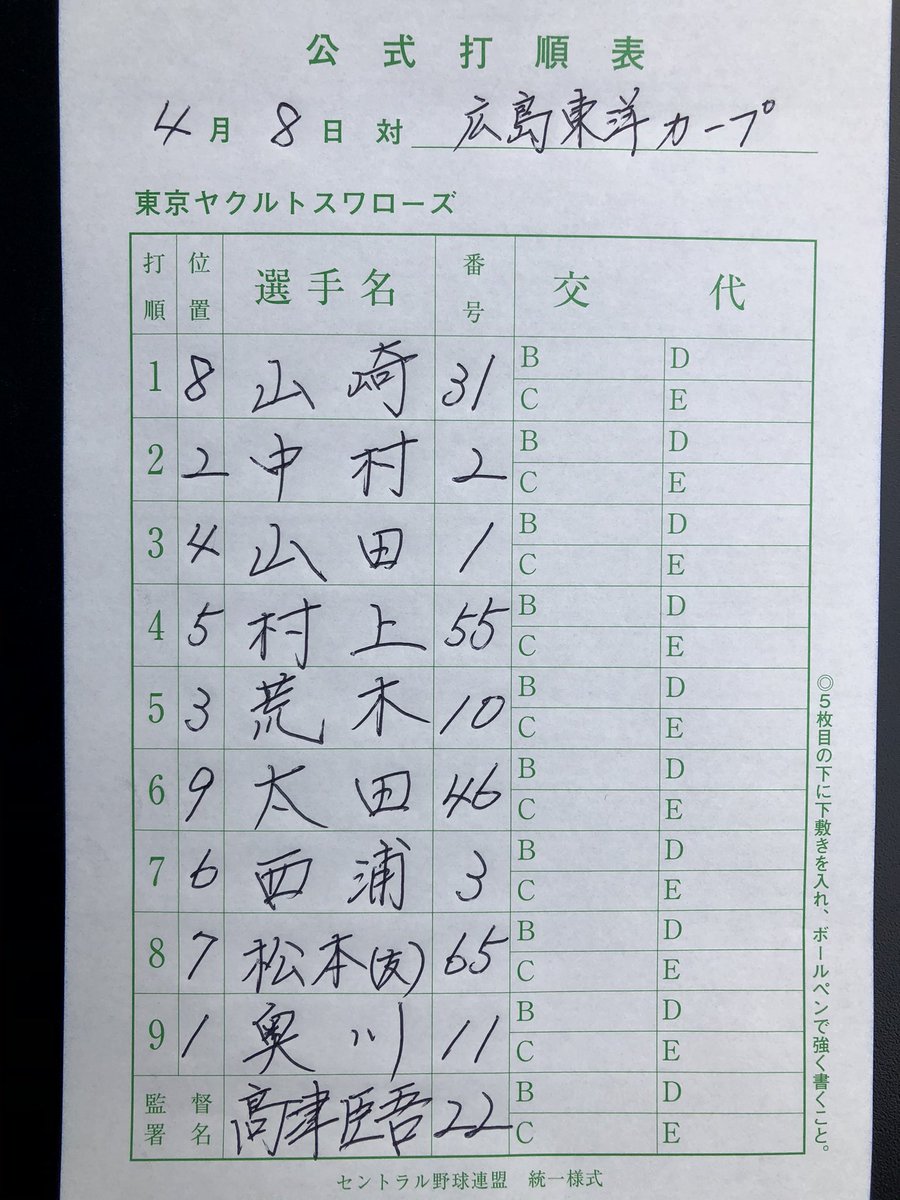 公式打順表
4月8日対 広島東洋カープ
東京ヤクルトスワローズ
打順 位置 選手名 番号 交代
1 8 山崎 31 B D
C E
2 2 中村 2 B D
C E
3 4 山田 1 B D
C E
4 5 村上 55 B D
C E
5 3 荒木 10 B D
C E
6 9 太田 46 B D
C E
7 6 西浦 3 B D
C E
8 7 松本(友) 65 B D
C E
9 1 奥川 11 B D
C E
監督署名 高津臣吾 22 B D
C E
◎5枚目の下に下敷きを入れ、ボールペンで強く書くこと。
セントラル野球連盟 統一様式